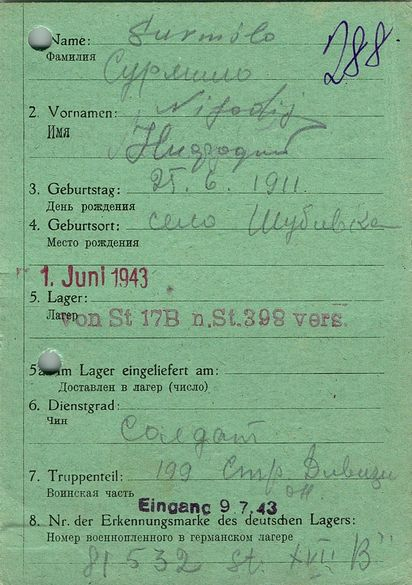 Name: Surmilo
288.
Фамилия
Сурмило
2. Vornamen:
Имя
3. Geburtstag: 25. 6. 1911.
День рождения
4. Geburtsort: село Шубивка
Место рождения
1. Juni 1943
5. Lager:
Лагерь
von St 17B n.St.398 vers.
5a. im Lager eingeliefert am:
Доставлен в лагерь (число)
6. Dienstgrad:
Чин
Солдат
7. Truppenteil: 199 Стр Дивизи
Воинская часть
Eingang 9.7.43
8. Nr. der Erkennungsmarke des deutschen Lagers:
Номер военнопленного в германском лагере
81532 St. XVII B